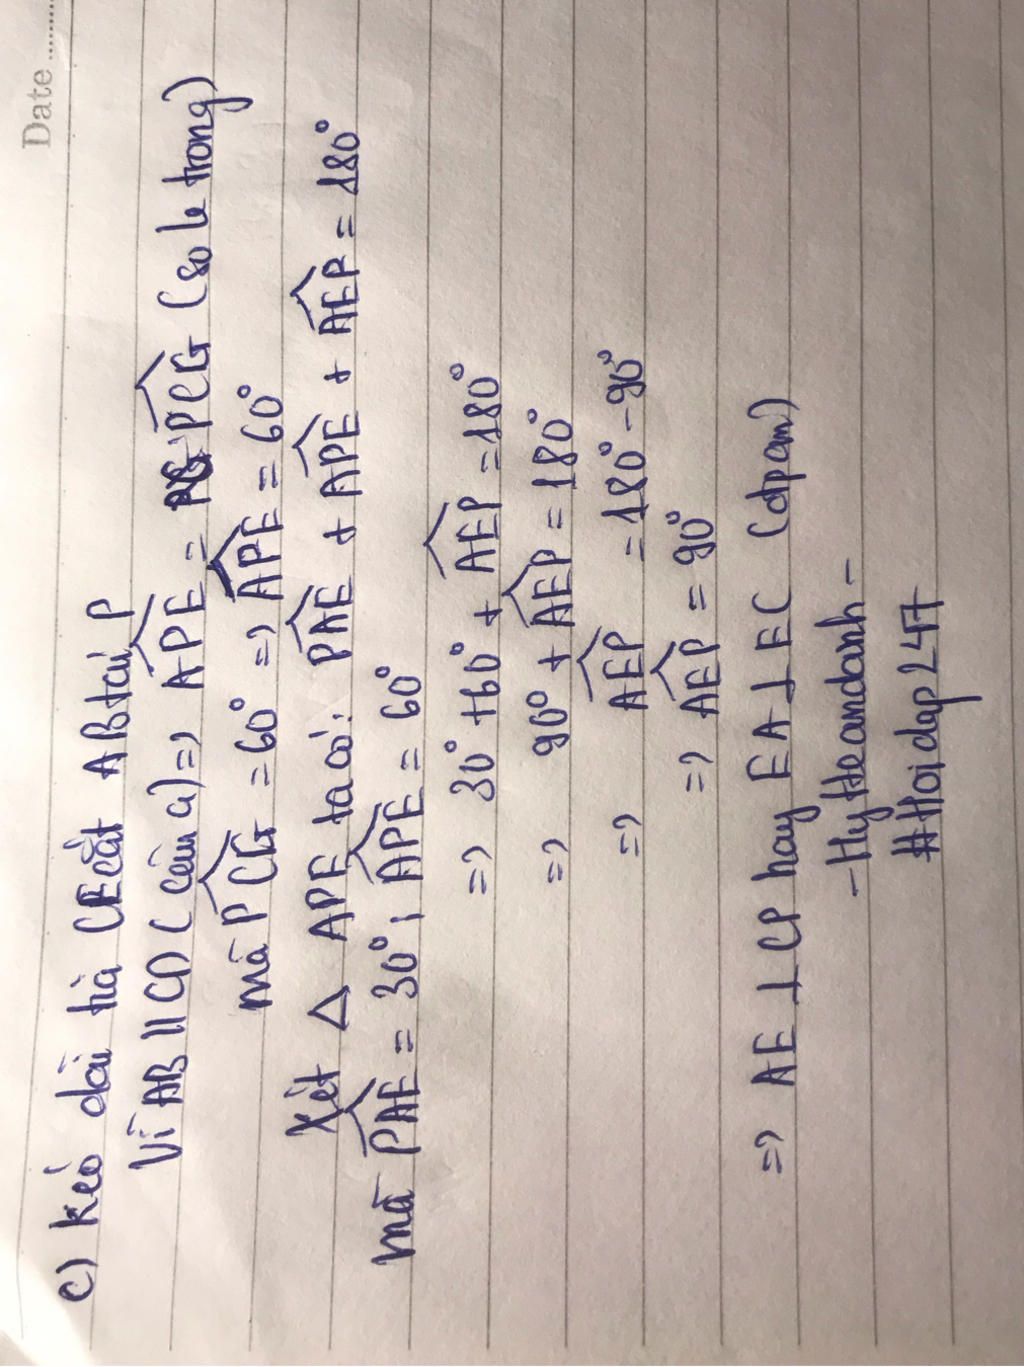 Date ........
c) kéo dài tia CE cắt AB tại P
Vì AB // CD (câu a) => APE = PCG (so le trong)
mà PCG = 60° => APE = 60°
Xét △ APE ta có: PAE + APE + AEP = 180°
mà PAE = 30° ; APE = 60°
=> 30° + 60° + AEP = 180°
=> 90° + AEP = 180°
=> AEP = 180° - 90°
=> AEP = 90°
=> AE ⊥ CP hay EA ⊥ EC (đpcm)
- Hyteandanh -
#Hoidap247